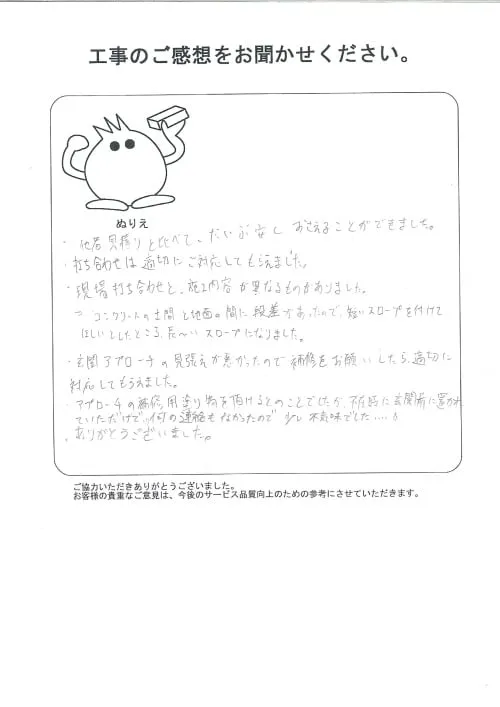 工事のご感想をお聞かせください。
ぬりえ
・他店見積りと比べて、だいぶ安くおさえることができました。
・打ち合わせは適切にご対応してもらえました。
・現場打ち合わせと、施工内容が異なるものがありました。
⇒コンクリートの土間と地面の間に段差があったので、短いスロープを付けて
ほしいとしたところ、長〜いスロープになりました。
・玄関アプローチの見張えが悪かったので補修をお願いしたら、適切に
対応してもらえました。
・アプローチの補修用塗り物を頂けるとのことでしたが、不在時に玄関前に置かれ
ていただけで、何の連絡もなかったので少し不気味でした....
・ありがとうございました。
ご協力いただきありがとうございました。
お客様の貴重なご意見は、今後のサービス品質向上のための参考にさせていただきます。